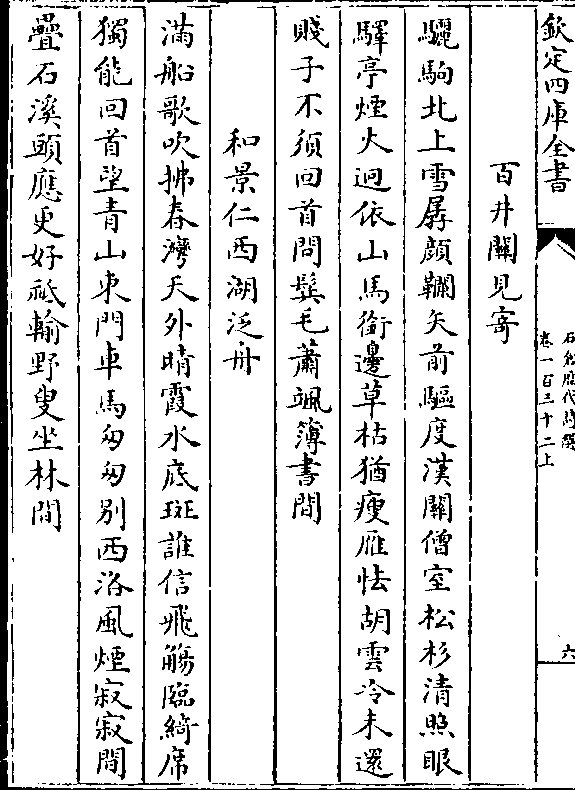 欽定四庫全書
石倉歷代詩選
卷一百三十二上
六
百井關見寄
驪駒北上雪孱顔韊矢前驅度漢關僧室松杉清照眼
驛亭煙火迥依山馬銜邊草枯猶瘦雁怯胡雲冷未還
賤子不須回首問鬓毛蕭颯簿書間
和景仁西湖泛舟
滿船歌吹拂春灣天外晴霞水底斑誰信飛觴臨綺席
獨能回首望青山東門車馬匆匆别西洛風煙寂寂間
疊石溪頭應更好祗輸野叟坐林間